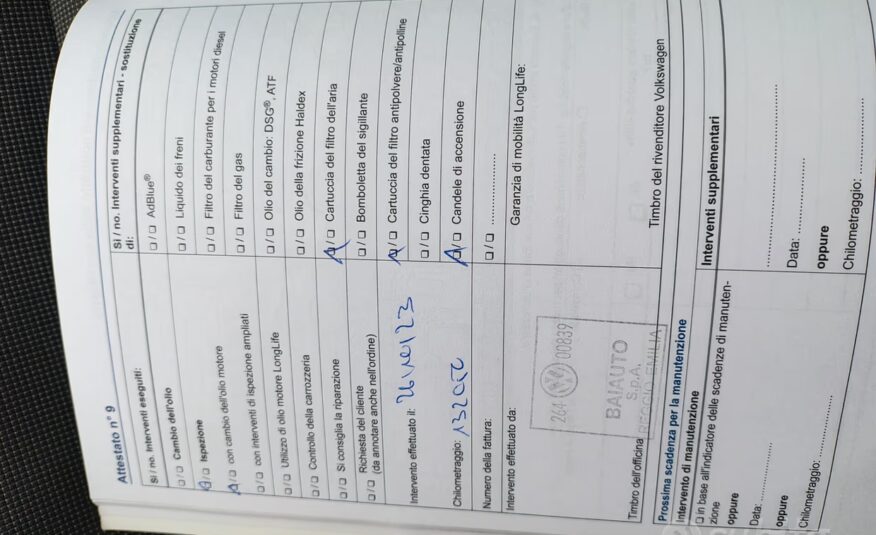 Attestato n° 9
Si / no. Interventi eseguiti:
❑ / ❑ Cambio dell'olio
❑ / ❑ Ispezione
❑ / ❑ con cambio dell'olio motore
❑ / ❑ con interventi di ispezione ampliati
❑ / ❑ Utilizzo di olio motore LongLife
❑ / ❑ Controllo della carrozzeria
❑ / ❑ Si consiglia la riparazione
Richiesta del cliente
❑ / ❑ (da annotare anche nell'ordine)
Intervento effettuato il: 26/10/23
Chilometraggio: 132000
Numero della fattura:
Intervento effettuato da:
264 00839
BAIAUTO
S.p.A.
REGGIO EMILIA
Timbro dell'officina
Si / no. Interventi supplementari - sostituzione
di:
❑ / ❑ AdBlue®
❑ / ❑ Liquido dei freni
❑ / ❑ Filtro del carburante per i motori diesel
❑ / ❑ Filtro del gas
❑ / ❑ Olio del cambio: DSG®, ATF
❑ / ❑ Olio della frizione Haldex
❑ / ❑ Cartuccia del filtro dell'aria
❑ / ❑ Bomboletta del sigillante
❑ / ❑ Cartuccia del filtro antipolvere/antipolline
❑ / ❑ Cinghia dentata
❑ / ❑ Candele di accensione
❑ / ❑ ....................
Garanzia di mobilità LongLife:
Timbro del rivenditore Volkswagen
Prossima scadenza per la manutenzione
Intervento di manutenzione
❑ in base all'indicatore delle scadenze di manuten-
zione
oppure
Data: ....................
oppure
Chilometraggio: ....................
Interventi supplementari
....................
Data: ....................
oppure
Chilometraggio: ....................